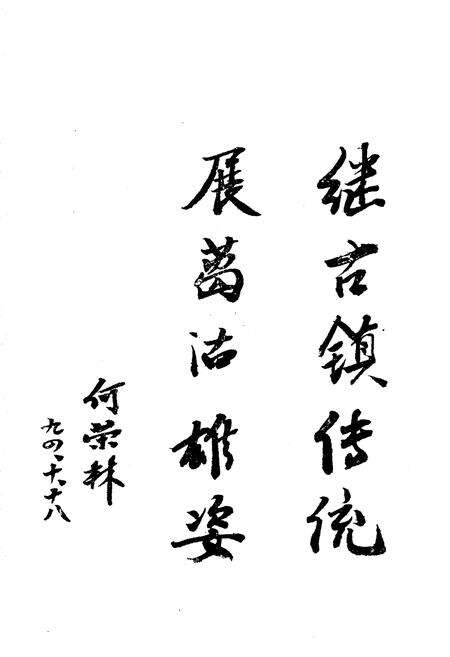 继古镇传统
展葛沽雄姿
何荣林
九四、十、十八